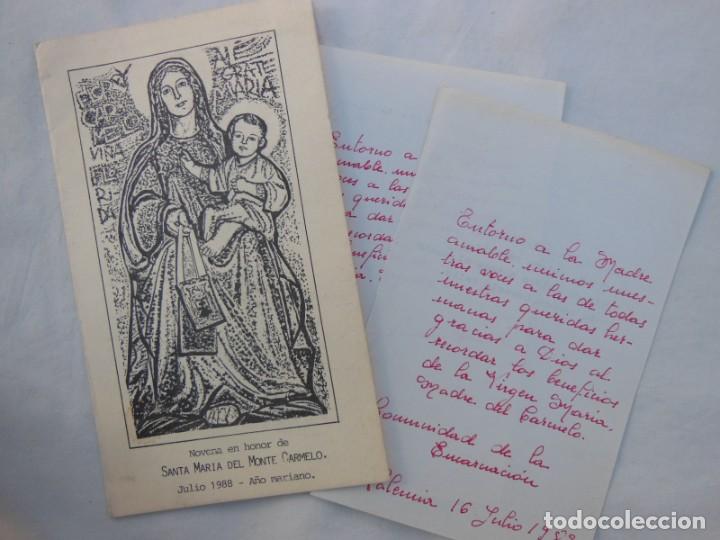 FLOR DEL
CARMELO
VIÑA
FLORI
DA
ALE
GRATE
MARIA
Novena en honor de
SANTA MARIA DEL MONTE CARMELO.
Julio 1988 - Año mariano.
Entorno a
amable
vous a las
querida
dar
Entorno a la Madre
amable, unimos nues-
tras voces a las de todas
nuestras queridas her-
manas para dar
gracias a Dios al
recordar los beneficios
de la Virgen Maria.
Madre del Carmelo.
Comunidad de la
Encarnación
Valencia 16 Julio
todocoleccion